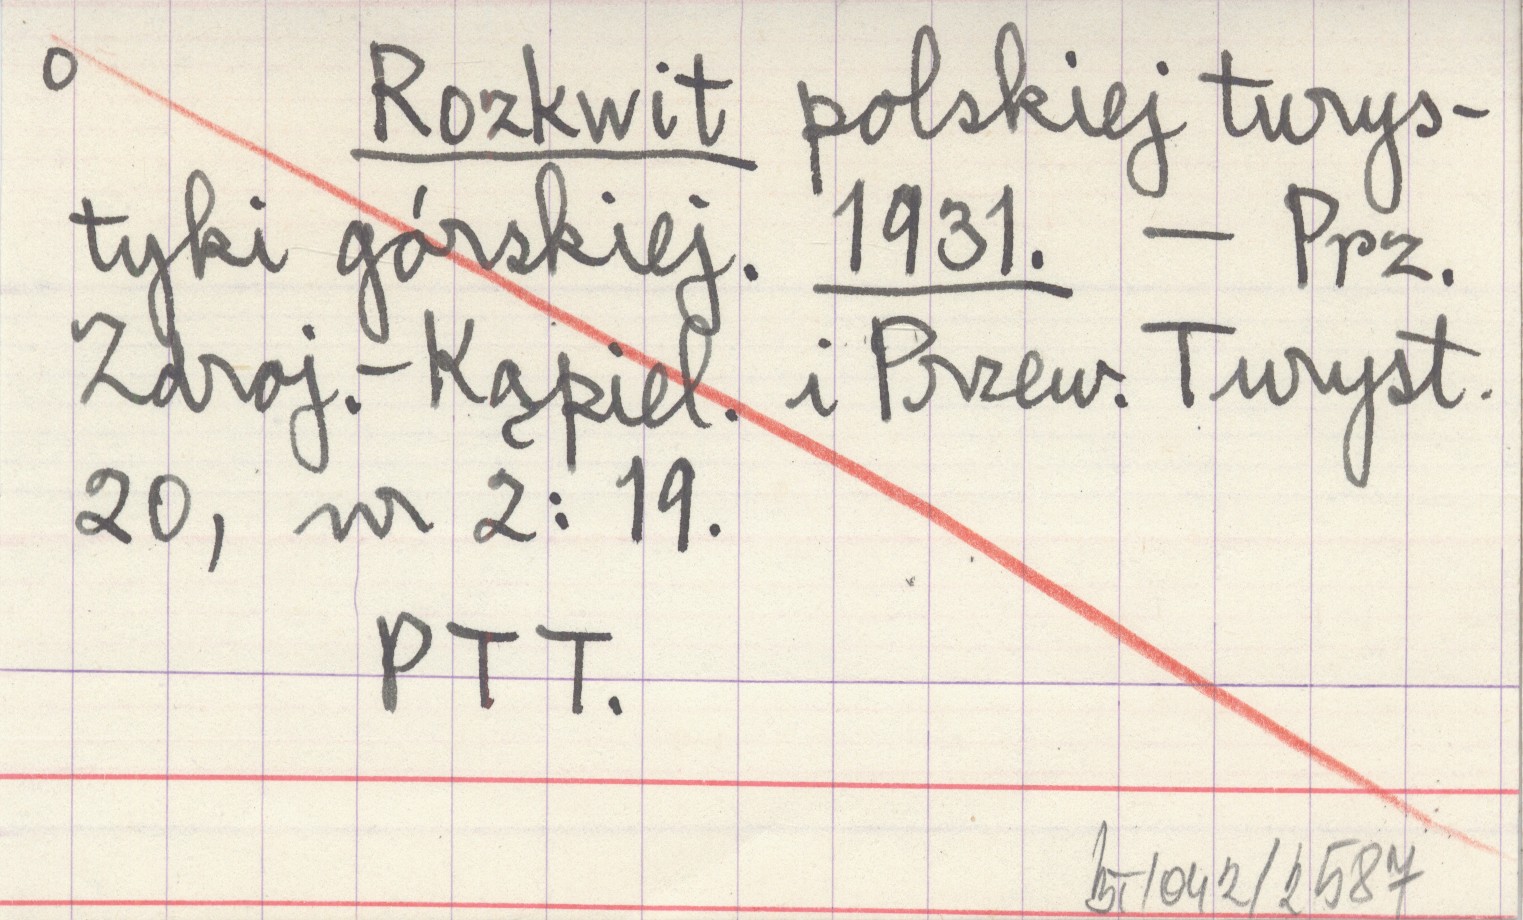 o Rozkwit polskiej turys-
tyki górskiej. 1931. — Prz.
Zdroj.-Kąpiel. i Przew. Turyst.
20, nr 2: 19.
PTT.
/042/2587